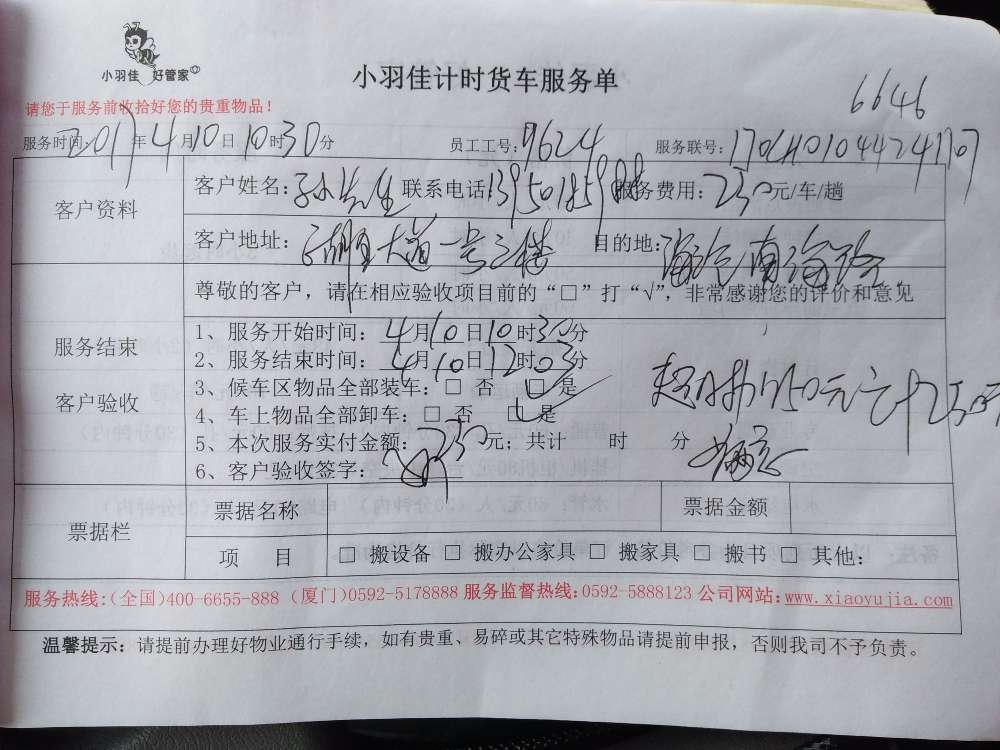 小羽佳 好管家
小羽佳计时货车服务单
6646
请您于服务前收拾好您的贵重物品！
服务时间：2017年4月10日10时30分 员工工号：7624 服务联号：
客户资料
客户姓名：孙先生 联系电话 服务费用：230元/车/趟
客户地址：大道一号三楼 目的地：海沧南海路
尊敬的客户，请在相应验收项目前的“□”打“√”，非常感谢您的评价和意见
服务结束
客户验收
1、服务开始时间：4月10日10时30分
2、服务结束时间：4月10日12时03分
3、候车区物品全部装车：□ 否 □ 是
4、车上物品全部卸车：□ 否 □ 是
5、本次服务实付金额：250元；共计 时 分
6、客户验收签字：
票据栏
票据名称 票据金额
项 目 □ 搬设备 □ 搬办公家具 □ 搬家具 □ 搬书 □ 其他：
服务热线：（全国）400-6655-888（厦门）0592-5178888 服务监督热线：0592-5888123 公司网站：www.xiaoyujia.com
温馨提示：请提前办理好物业通行手续，如有贵重、易碎或其它特殊物品请提前申报，否则我司不予负责。